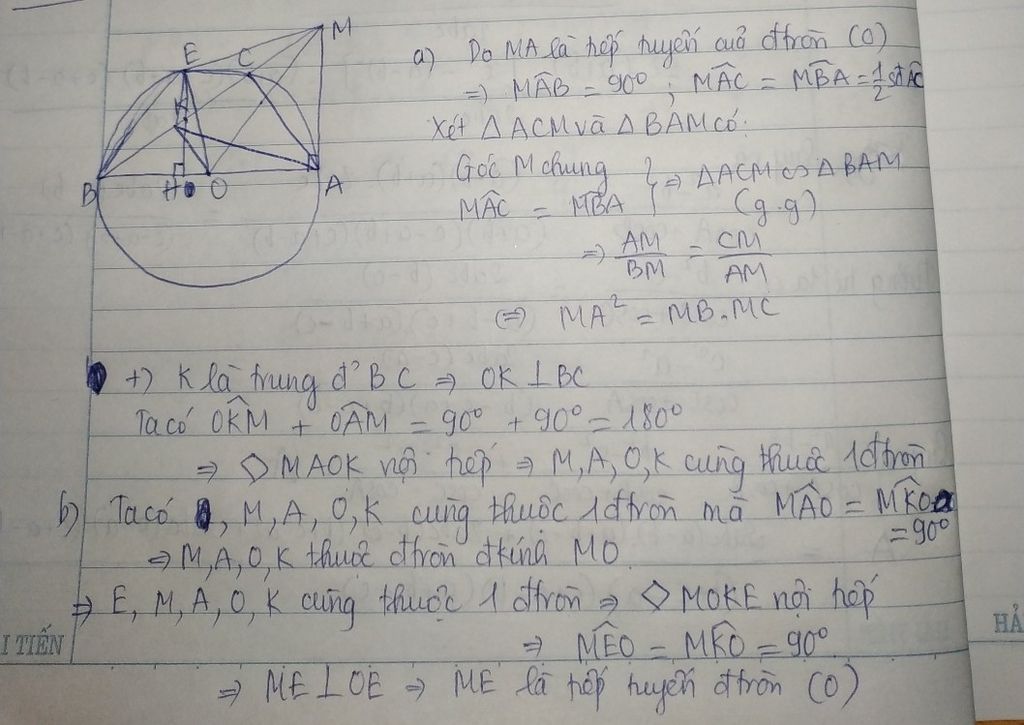 M
E
C
K
B
H
O
A
a) Do MA là tiếp tuyến cuả đtròn (O)
=> MÂB = 90° ; MÂC = MB̂A = 1/2 sđ AC
Xét △ACM và △BAM có:
Góc M chung
MÂC = MB̂A } => △ACM ∽ △BAM
(g.g)
=> AM/BM = CM/AM
(=> MA² = MB.MC
+) K là trung đ' BC => OK ⊥ BC
Ta có OK̂M + OÂM = 90° + 90° = 180°
=> ◇ MAOK nội tiếp => M, A, O, K cùng thuộc 1 đtròn
b) Ta có , M, A, O, K cùng thuộc 1 đtròn mà MÂO = MK̂O
= 90°
=> M, A, O, K thuộc đtròn đkính MO
=> E, M, A, O, K cùng thuộc 1 đtròn => ◇ MOKE nội tiếp
I TIẾN
HẢ
=> MÊO = MK̂O = 90°
=> ME ⊥ OE => ME là tiếp tuyến đtròn (O)